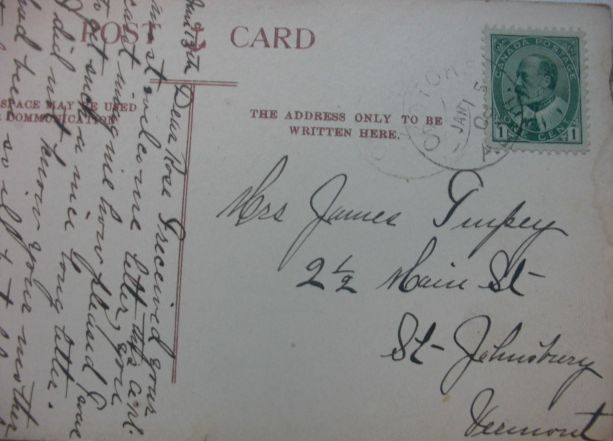 POST CARD
SPACE MAY BE USED
COMMUNICATION
THE ADDRESS ONLY TO BE
WRITTEN HERE.
CANADA POSTAGE
1 CENT 1
JAN
Mrs James Timpey
2 1/2 Main St
St-Johnsbury
Vermont
Dear Rae I received your
most welcome letter, you
can't imagine how pleased I was
to get such a nice long letter.
I did not know your mother
had been so ill